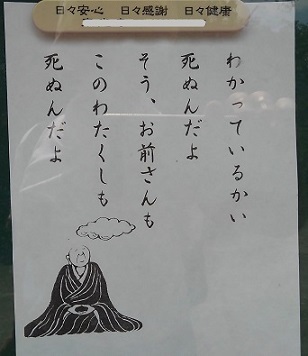 日々安心 日々感謝 日々健康
わかっているかい
死ぬんだよ
そう、お前さんも
このわたくしも
死ぬんだよ